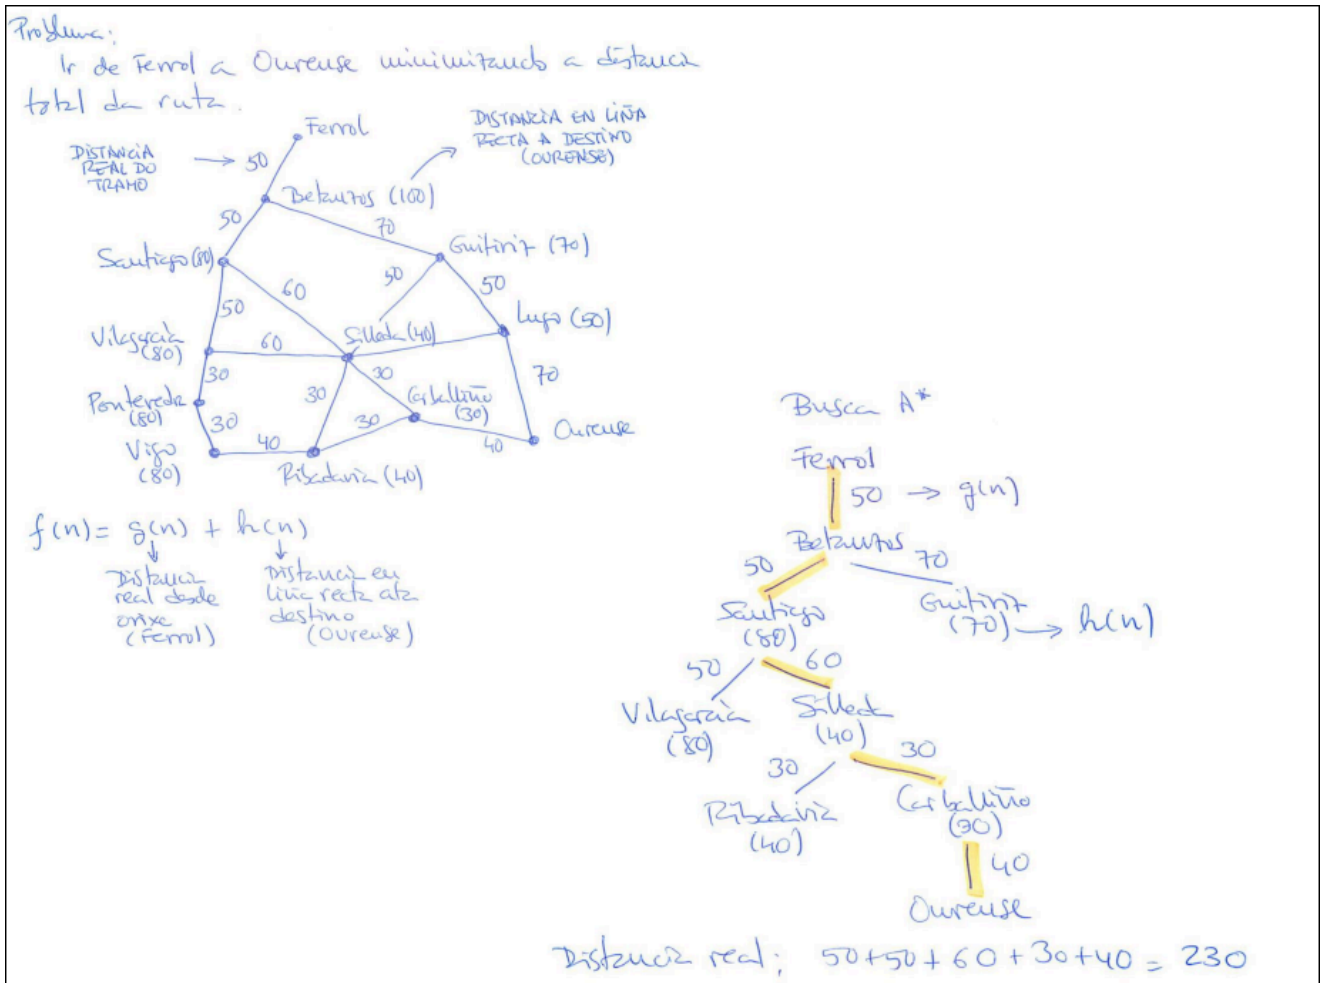 Problema:
Ir de Ferrol a Ourense minimizando a distancia
total da ruta.
Ferrol
DISTANCIA EN LIÑA
RECTA A DESTINO
(OURENSE)
DISTANCIA
REAL DO
TRAMO
50
Betanzos (100)
50
70
Santiago (80)
Guitiriz (70)
50
50
60
50
Lugo (50)
Vilagarcía
(80)
60
Silleda (40)
30
30
30
70
Pontevedra
(80)
Carballiño
(30)
30
30
Ourense
40
40
Vigo
(80)
Ribadavia (40)
f(n) = g(n) + h(n)
Distancia
real desde
orixe
(Ferrol)
Distancia en
liña recta ata
destino
(Ourense)
Busca A*
Ferrol
50 → g(n)
Betanzos
50
70
Santiago
(80)
Guitiriz
(70) → h(n)
50
60
Vilagarcía
(80)
Silleda
(40)
30
30
Ribadavia
(40)
Carballiño
(30)
40
Ourense
Distancia real: 50+50+60+30+40 = 230